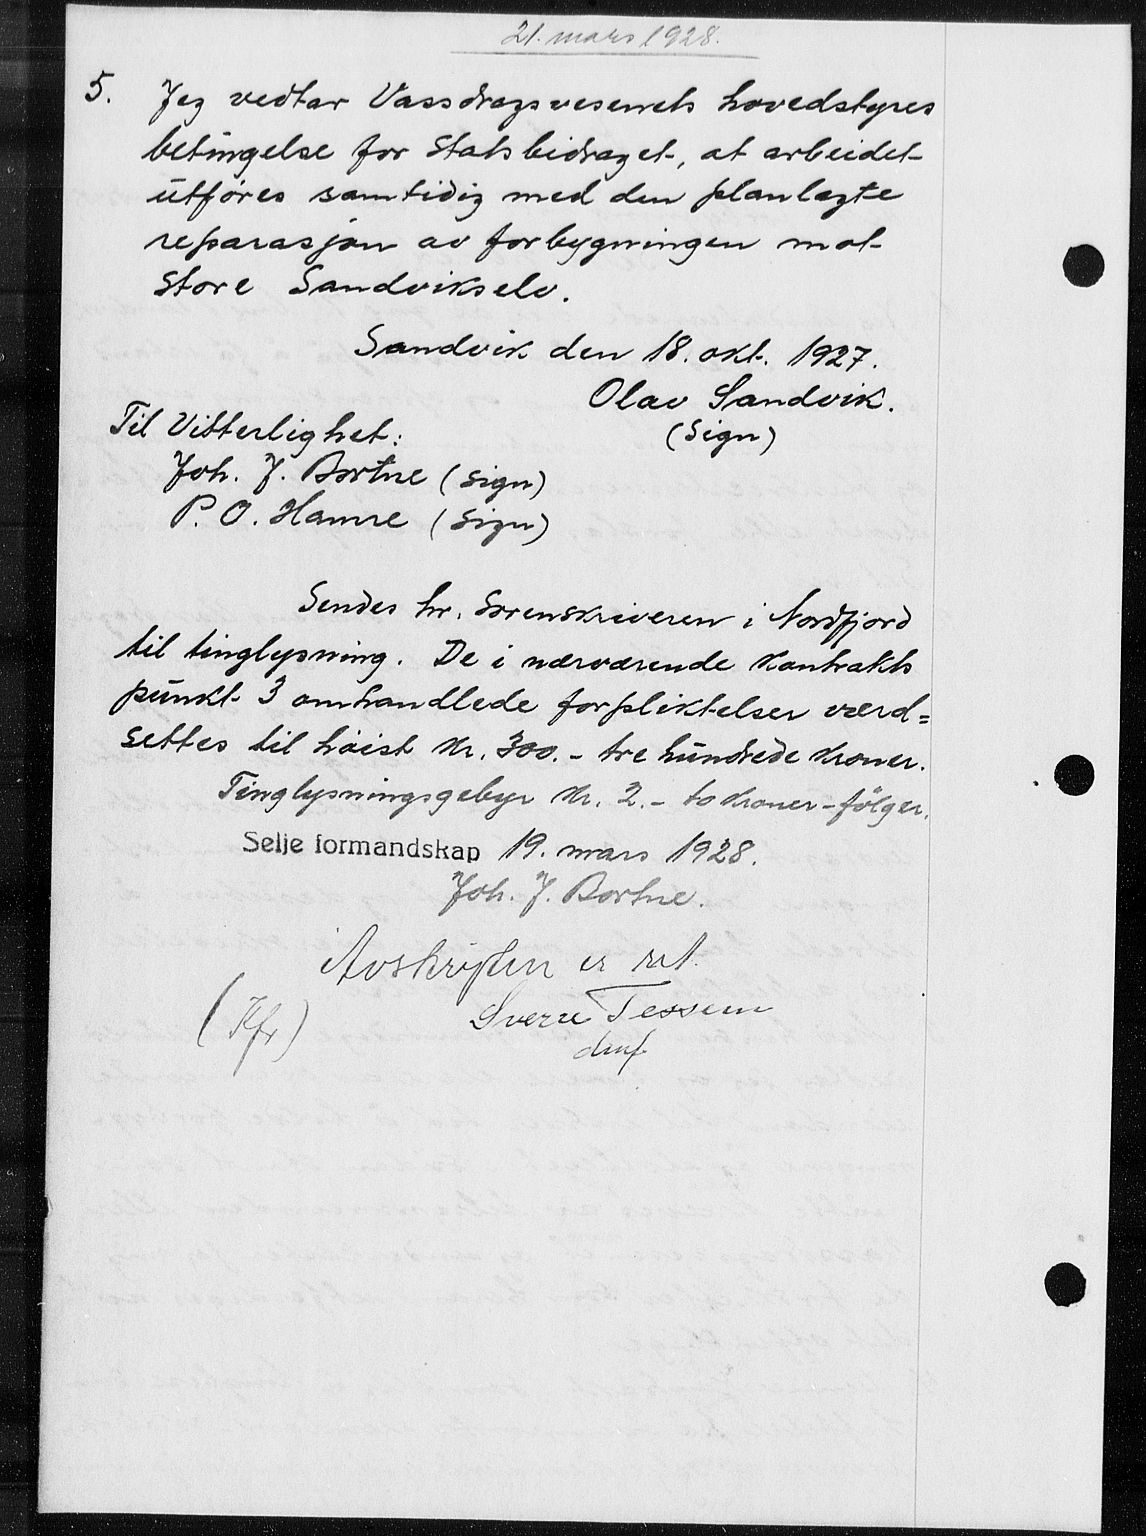 21. mars 1928.
5. Jeg vedtar Vassdragsvesenets hovedstyres
betingelse for Statsbidraget, at arbeidet
utføres samtidig med den planlagte
reparasjon av forbygningen mot
Store Sandvikselv.
Sandvik den 18. okt. 1927.
Olav Sandvik.
(Sign)
Til Vitterlighet:
Joh. J. Bortne (sign)
P. O. Hamre (sign)
Sendes hr. Sorenskriveren i Nordfjord
til tinglysning. De i nærværende Kontrakts
punkt 3 omhandlede forpliktelser værd=
settes til høist Kr. 300.- tre hundrede kroner.
Tinglysningsgebyr Kr. 2.- to kroner - følger.
Selje formandskap 19. mars 1928.
Joh. J. Bortne.
Avskriften er ret.
Sverre Tessem
(Kfr)